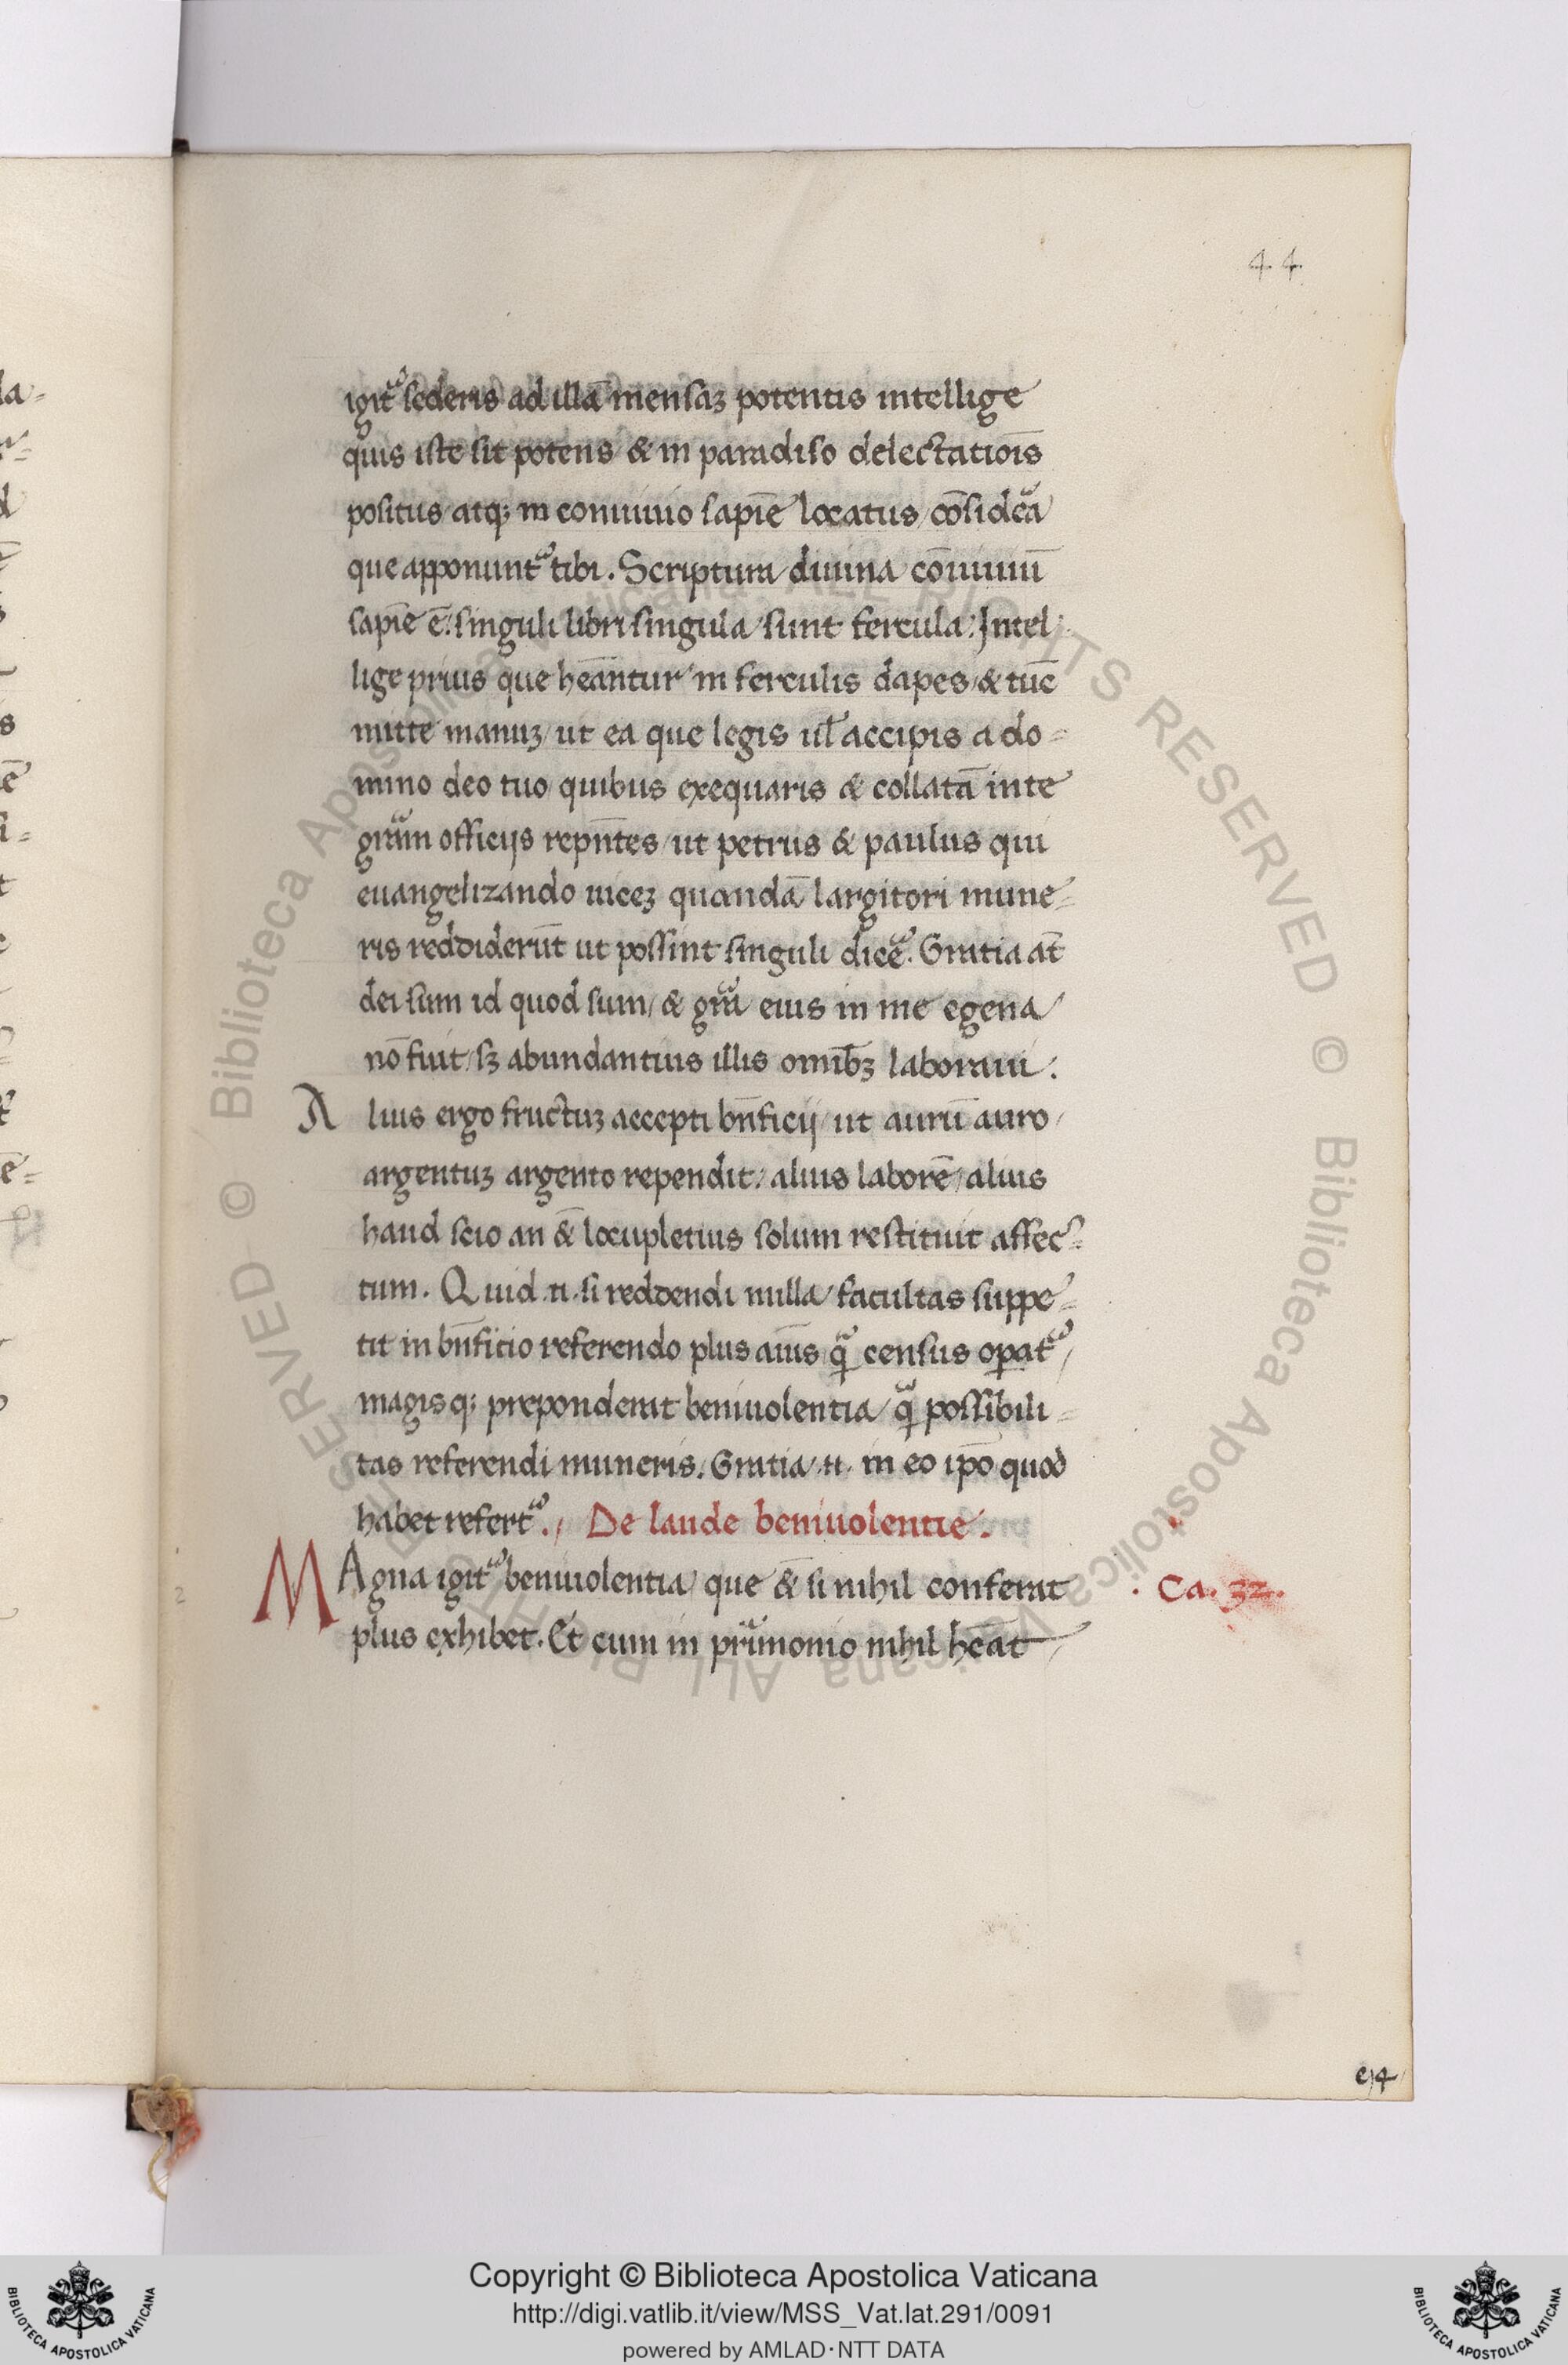 44
igit᷑ sederis ad illā mensaꝫ potentis intellige
quis iste sit potens & in paradiso delectatiōis
positus atq; in conuiuio sapīe locatus cōsidea
que apponunt᷑ tibi. Scriptura diuina cōuiuiū
sapīe ē: singuli libri singula sunt fercula: Intel
lige prius que heāntur in ferculis dapes & tūc
mitte manuꝫ ut ea que legis ul̄ accipis a do-
mino deo tuo quibus exequaris & collatā inte
gram officijs repn̄tes ut petrus & paulus qui
euangelizando uiceꝫ quandā largitori mune-
ris reddiderūt ut possint singuli dice. Gratia at̄
dei sum id quod sum / & gra eius in me egena
nō fuit / sꝫ abundantius illis omīb; laboraui:
Alius ergo fructuꝫ accepti bn̄ficij ut aurū auro
argentuꝫ argento rependit: alius laborē / alius
haud scio an &̄ locupletius solum restituit affec-
tum. Quid .n. si reddendi nulla facultas suppe-
tit in bn̄ficio referendo plus aīus ꝗ census oꝑat᷑
magisq; preponderat beniuolentia ꝗ possibili-
tas referendi muneris. Gratia .n. in eo ip̄o quod
habet refert᷑. De laude beniuolentie.
MAgna igit᷑ beniuolentia que &̄ si nihil conferat
. Ca. 32.
plus exhibet. Et cum in primonio nihil heāt
e4
Copyright © Biblioteca Apostolica Vaticana
http://digi.vatlib.it/view/MSS_Vat.lat.291/0091
powered by AMLAD·NTT DATA
BIBLIOTECA APOSTOLICA VATICANA
BIBLIOTECA APOSTOLICA VATICANA
© Biblioteca Apostolica Vaticana ALL RIGHTS RESERVED © Biblioteca Apostolica Vaticana ALL RIGHTS RESERVED